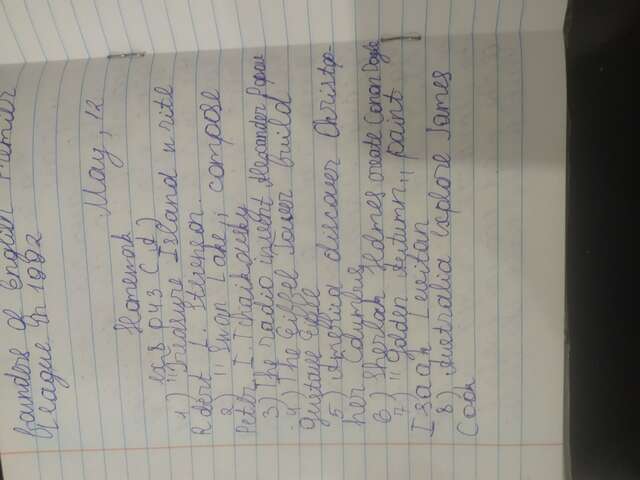 founders of English Premier
League. In 1992
May, 12
Homewok
ex8 p43 (d)
1) "Treasure Island write
Robert L. Stevenson.
2) "Swan Lake,, compose
Peter I Tchaikovsky
3) The radio invent Alexander Popov
4) The Eiffel tower build
Gustave Eiffle
5) America discover Christo-
her Columbus
6) Sherlok Holmes create Conan Doyle
7) ,, Golden Autumn,, paint
Isaak Levitan
8) Australia explore James
Cook